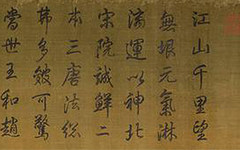 江山千里望
無垠元氣淋
漓運以神北
宋院誠鮮二
本三唐法總
弗多皴可驚
當世王和趙